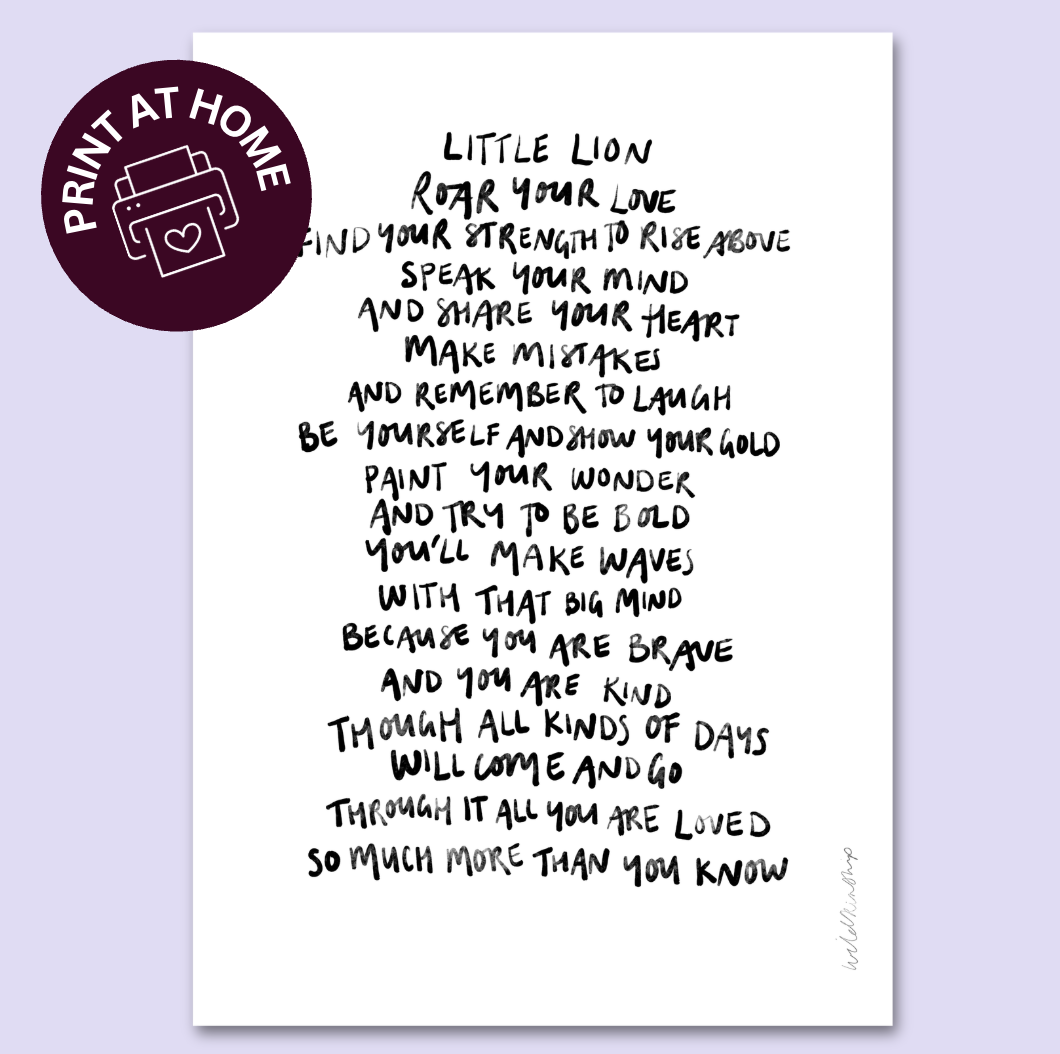 PRINT AT HOME
LITTLE LION
ROAR YOUR LOVE
FIND YOUR STRENGTH TO RISE ABOVE
SPEAK YOUR MIND
AND SHARE YOUR HEART
MAKE MISTAKES
AND REMEMBER TO LAUGH
BE YOURSELF AND SHOW YOUR GOLD
PAINT YOUR WONDER
AND TRY TO BE BOLD
YOU'LL MAKE WAVES
WITH THAT BIG MIND
BECAUSE YOU ARE BRAVE
AND YOU ARE KIND
THOUGH ALL KINDS OF DAYS
WILL COME AND GO
THROUGH IT ALL YOU ARE LOVED
SO MUCH MORE THAN YOU KNOW
wildkinship